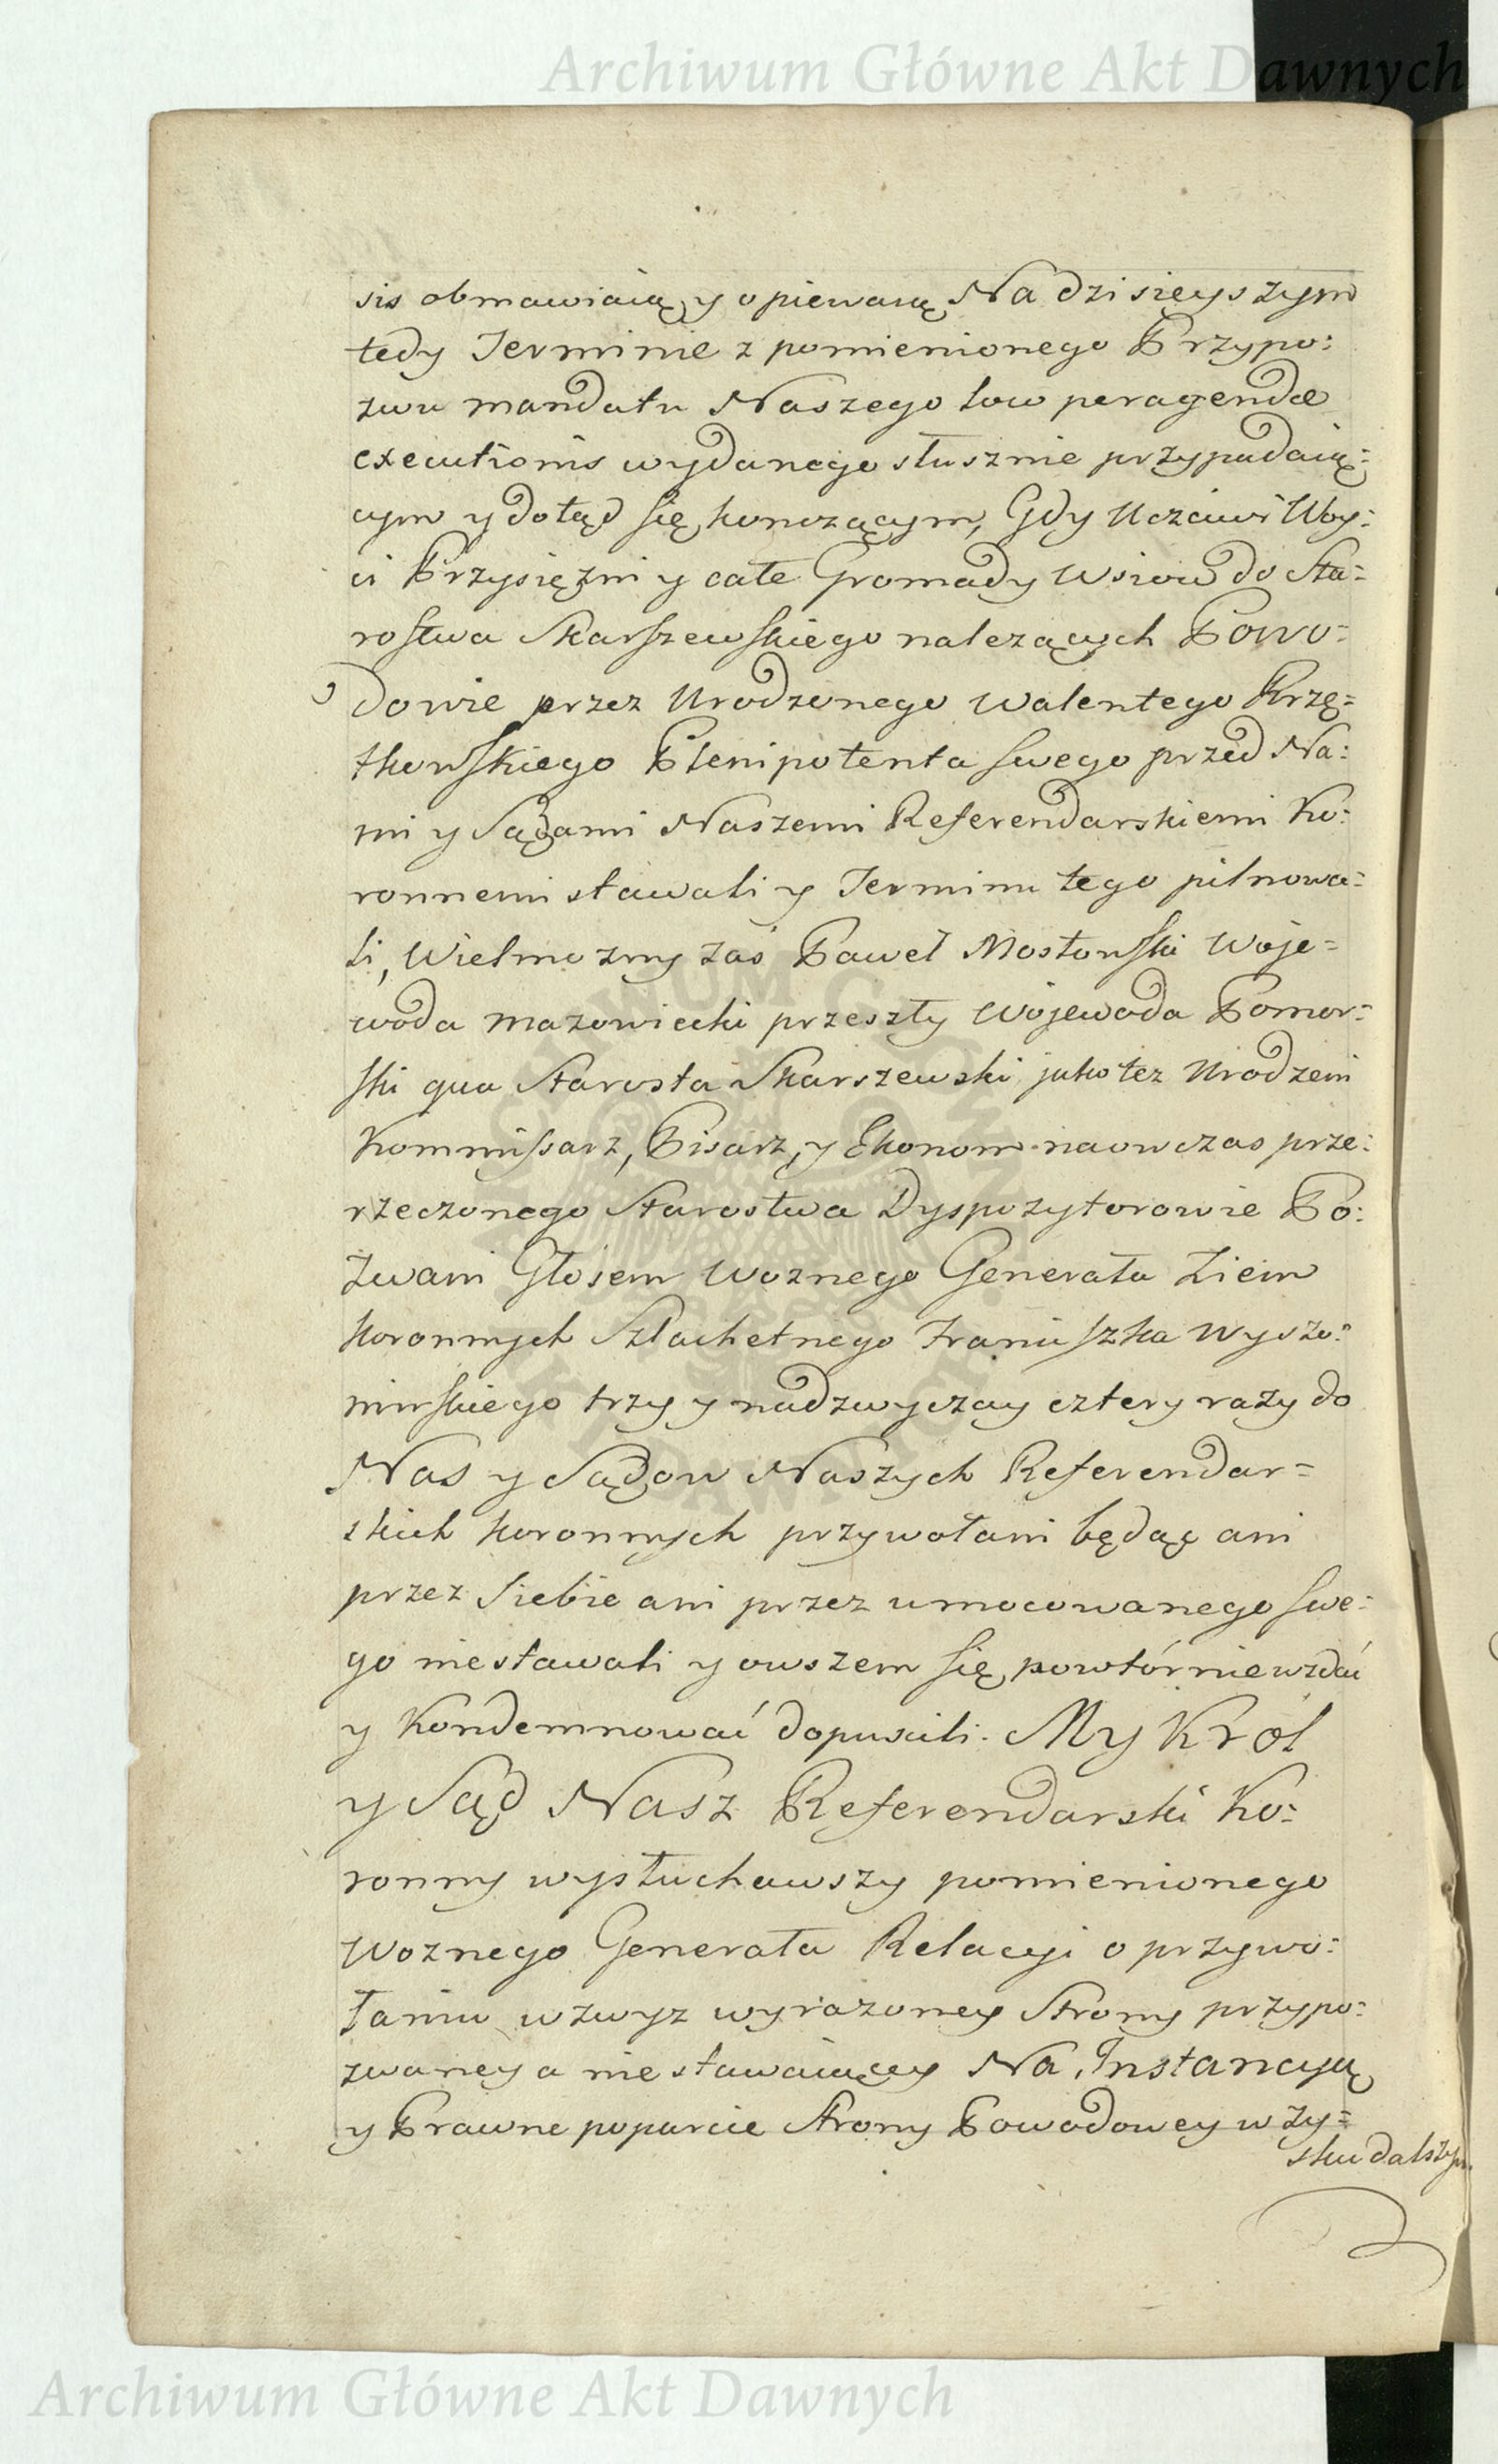 Archiwum Główne Akt Dawnych
sis obmawiaią y opiewaią Na dzisieyszym
tedy Terminie z pomienionego Przypo:
zwu mandatu Naszego loco peragendæ
executionis wydanego słusznie przypadaią:
cym y dotąd się konczącym, Gdy Uczciwi Woy:
ci Przysięzni y całe Gromady Wsiow do Sta=
rostwa Skarszewskiego nalezących Powo=
dowie przez Urodzonego Walentego Krzę=
tkowskiego Plenipotenta swego przed Na:
mi y Sądami Naszemi Referendarskiemi Ko:
ronnemi stawali y Terminu tego pilnowa=
li, Wielmozny zaś Paweł Mostowski Woje=
woda mazowiecki przeszły Wojewoda Pomor=
ski qua Starosta Skarszewski jako tez Urodzeni
Kommissarz, Pisarz, y Ekonom naowczas prze:
rzeczonego Starostwa Dyspozytorowie Po:
zwani Głosem Woznego Generała Ziem
koronnych Szlachetnego Franciszka Wyszo:
mirskiego trzy y nadzwyczay cztery razy do
Nas y Sądow Naszych Referendar=
skich koronnych przywołani będąc ani
przez Siebie ani przez umocowanego swe:
go niestawali y owszem się powtórnie wzdać
y Kondemnować dopuscili. My Król
y Sąd Nasz Referendarski Ko:
ronny wysłuchawszy pomienionego
Woznego Generała Relacyi o przywo:
łaniu wzwyz wyrazoney Strony przypo:
zwaney a niestawaiącey Na Instancyą
y Prawne poparcie Strony Powodowey w zy=
sku dalszym
Archiwum Główne Akt Dawnych